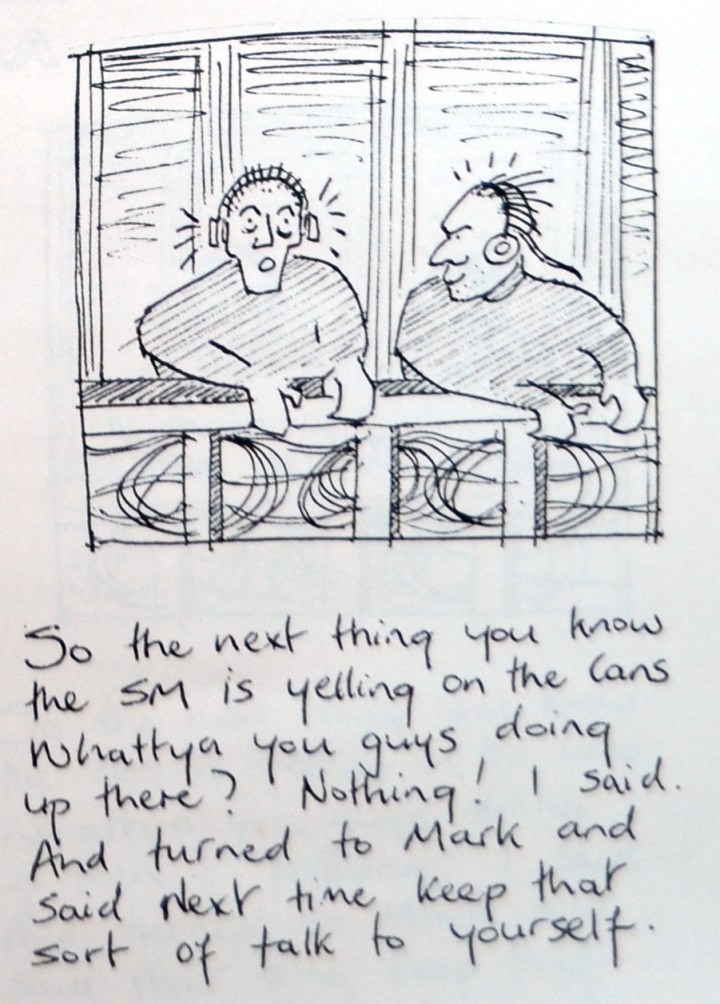 So the next thing you know
the SM is yelling on the Cans
Whattya you guys doing
up there? Nothing! I said.
And turned to Mark and
said Next time keep that
sort of talk to yourself.